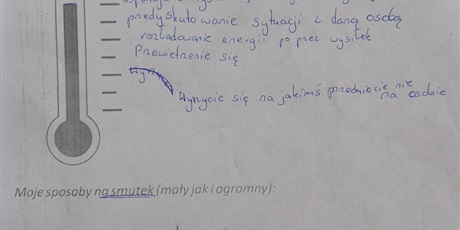 przedyskutowanie sytuacji z daną osobą
rozładowanie energii poprzez wysiłek
Przewietrzenie się
Wyżycie się na jakimś przedmiocie nie
na osobie
Moje sposoby na smutek (mały jak i ogromny):